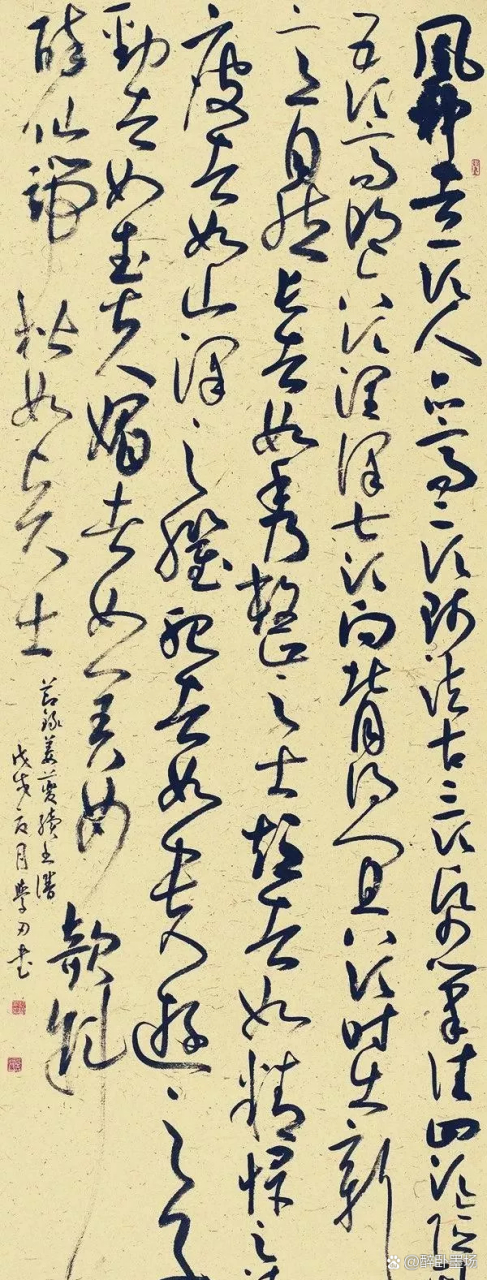 風神者一須人品高二須師法古三須紙筆佳四須險
五須高明六須潤澤七須向背得宜八須時出新
意自然長者如秀整之士短者如精悍之
瘦者如山澤之臞肥者如貴遊之子
勁者如武夫媚者如美女欹斜
醉仙端楷如賢士
節錄姜夔續書譜
戊戌夏月學書
@醉卧墨场